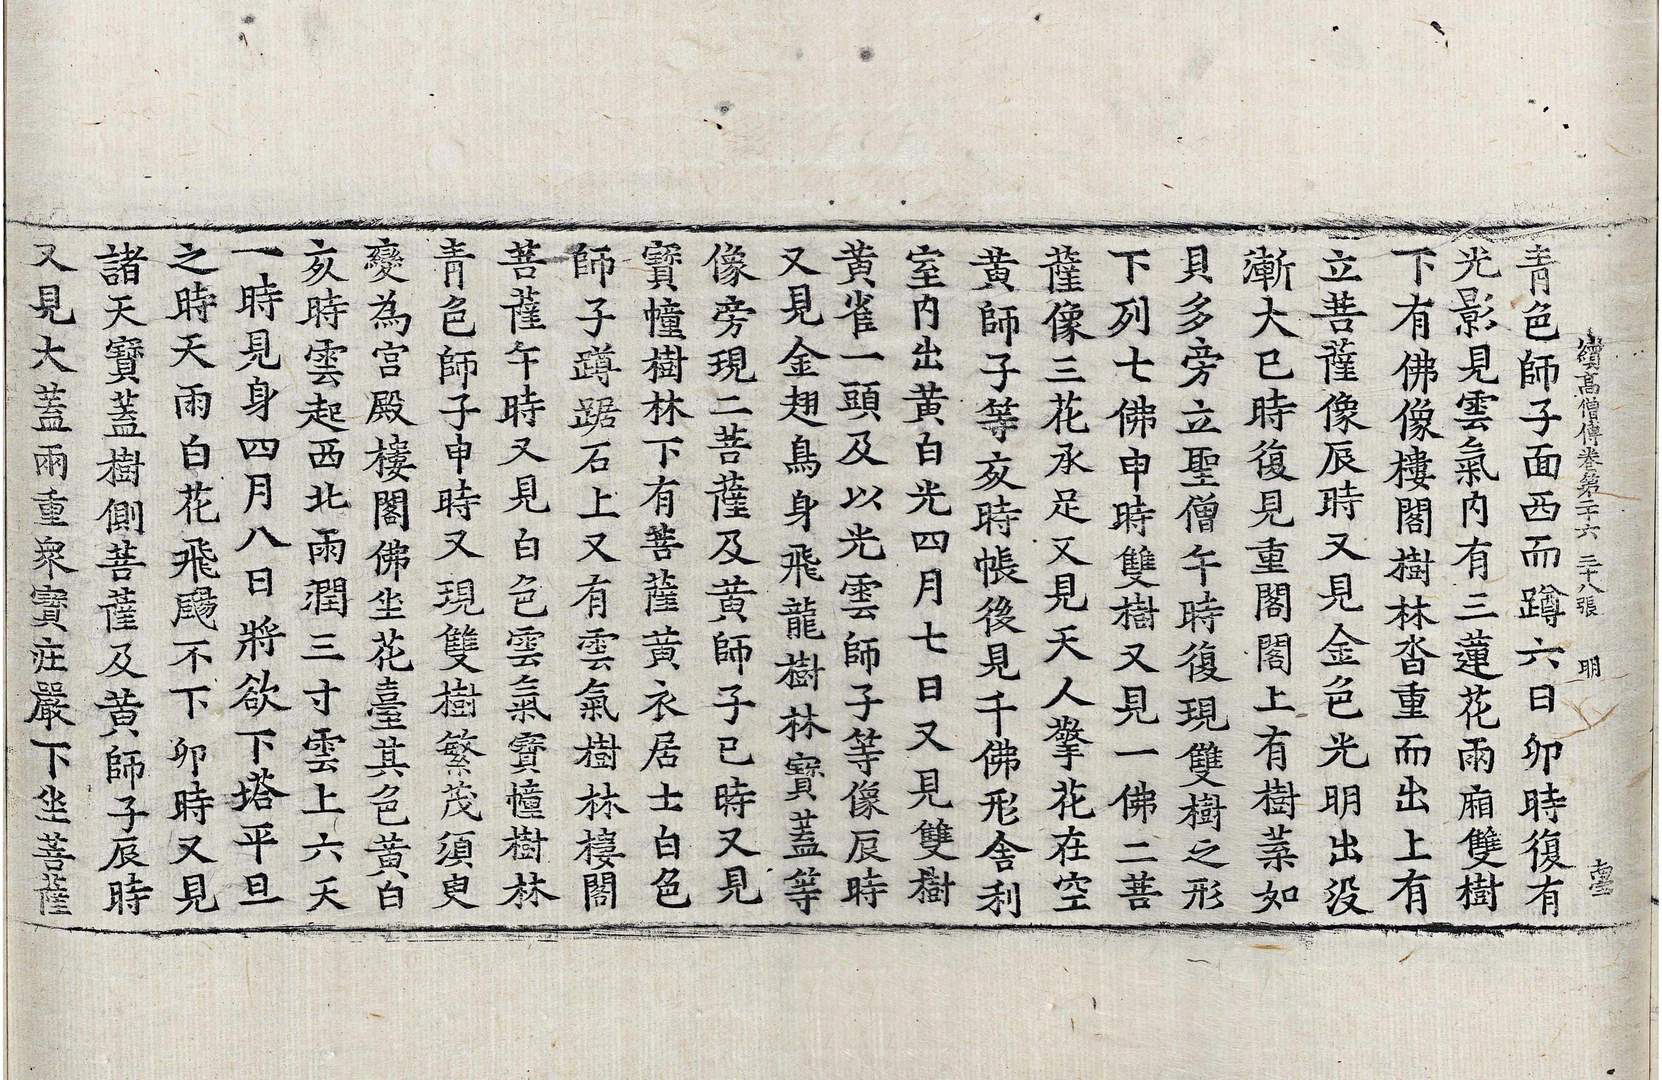 續高僧傳卷第二十六 三十八張 明
青色師子面西而蹲六日卯時復有
光影見雲氣内有三蓮花兩廂雙樹
下有佛像樓閣樹林沓重而出上有
立菩薩像辰時又見金色光明出没
漸大巳時復見重閣閣上有樹葉如
貝多旁立聖僧午時復現雙樹之形
下列七佛申時雙樹又見一佛二菩
薩像三花承足又見天人擎花在空
黃師子等亥時帳後見千佛形舍利
室内出黃白光四月七日又見雙樹
黃雀一頭及以光雲師子等像辰時
又見金翅鳥身飛龍樹林寶蓋等
像旁現二菩薩及黃師子巳時又見
寶幢樹林下有菩薩黃衣居士白色
師子蹲踞石上又有雲氣樹林樓閣
菩薩午時又見白色雲氣寶幢樹林
青色師子申時又現雙樹繁茂須臾
變為宮殿樓閣佛坐花臺其色黃白
亥時雲起西北雨潤三寸雲上六天
一時見身四月八日將欲下塔平旦
之時天雨白花飛颺不下卯時又見
諸天寶蓋樹側菩薩及黃師子辰時
又見大蓋兩重衆寶莊嚴下坐菩薩